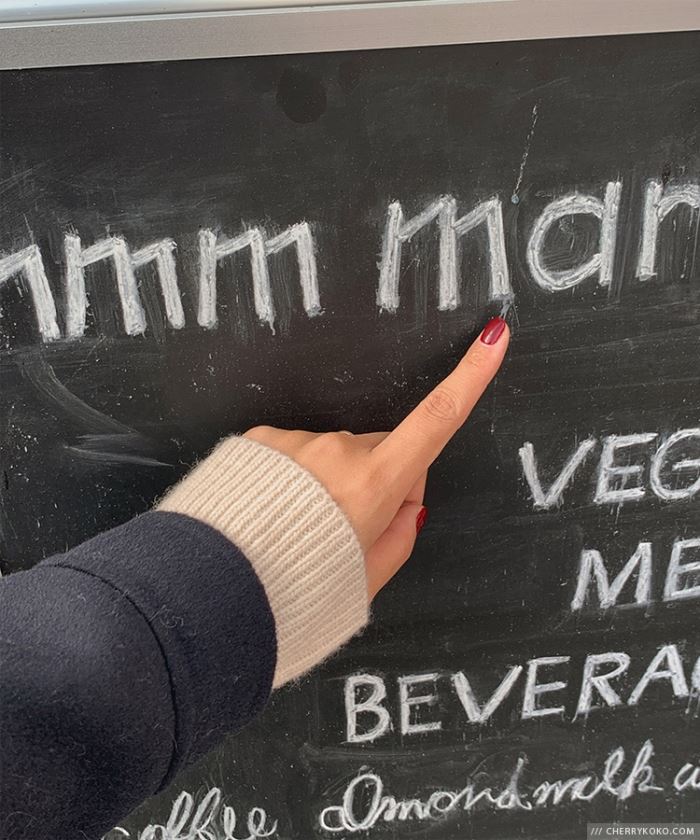 mmm man
VEG
ME
BEVERA
coffee Almondmilk
/// CHERRYKOKO.COM